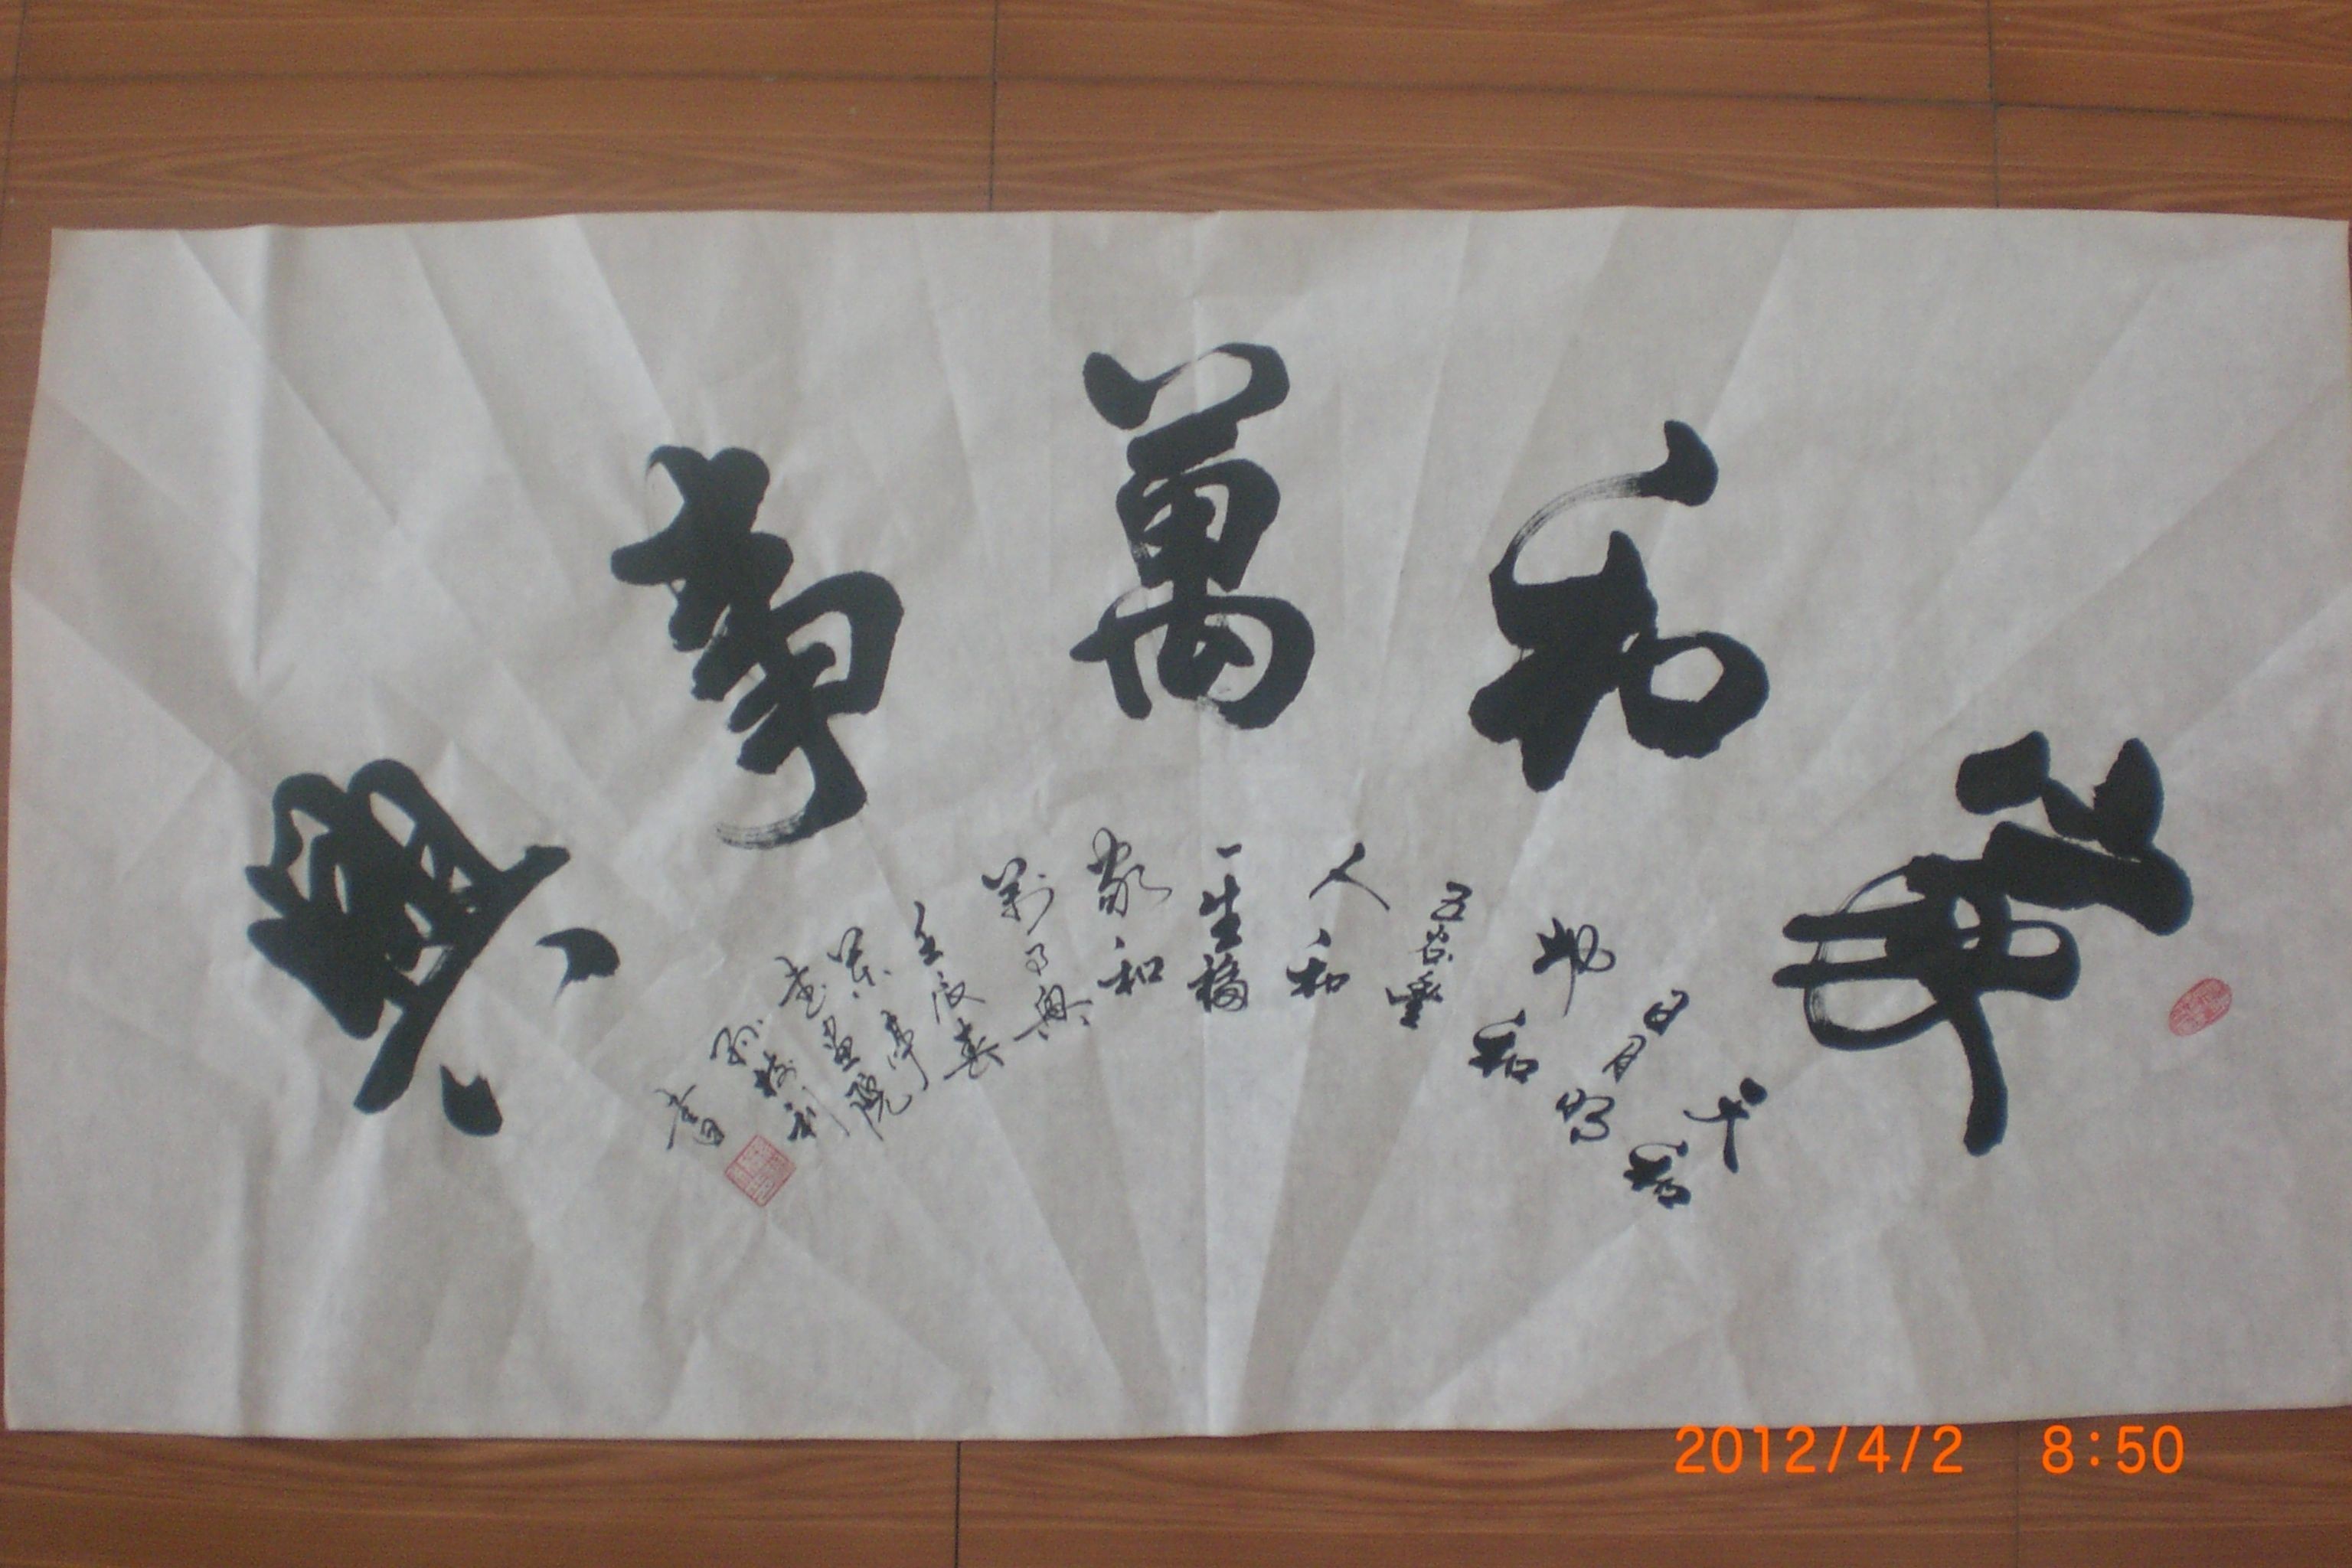 家和萬事興
天和
日月明
地和
五谷豐
人和
一生福
家和
萬事興
壬辰春
亭
書畫院
書
2012/4/2 8:50